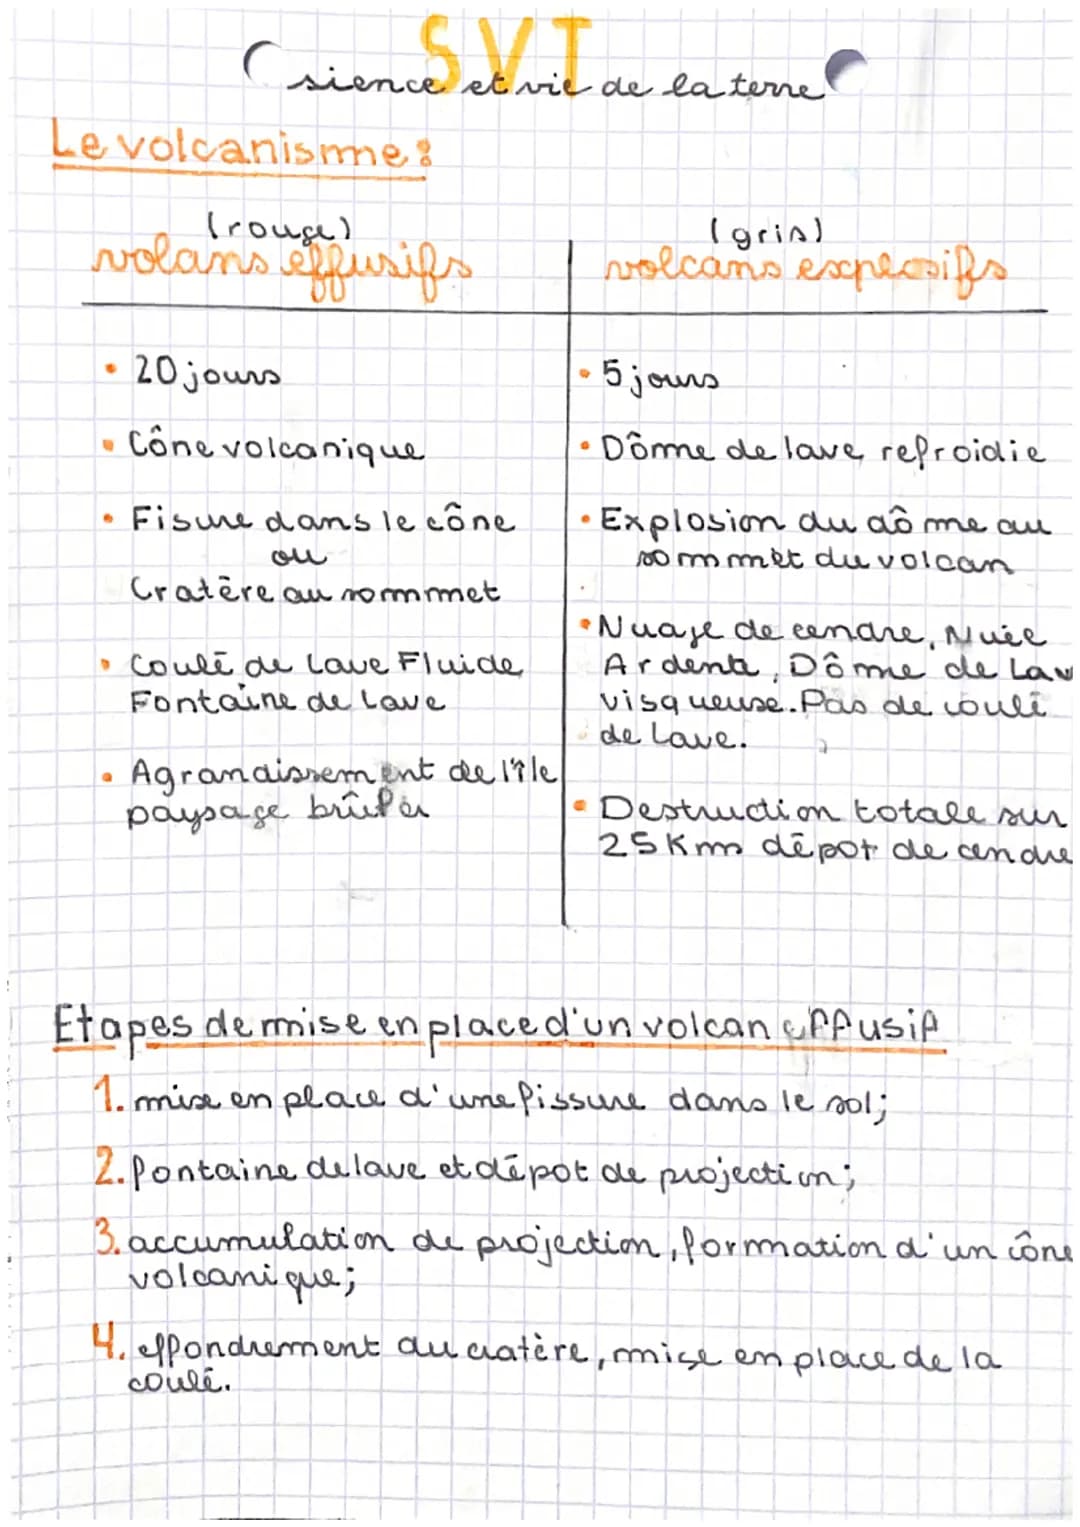 SVT
sience et vie de la terre
Le volcanisme :
(rouge)
volans effusifs
(gris)
volcans explosifs
• 20 jours
• Cône volcanique
• Fisure dans le cône
ou
Cratère au sommet
• Coulé de Lave Fluide
Fontaine de Lave
• Agrandissement de l'île
paysage brûler
• 5 jours
• Dôme de lave refroidie
• Explosion du dôme au
sommet du volcan
• Nuage de cendre, Nuée
Ardente, Dôme de Lav
visqueuse. Pas de coulé
de Lave.
• Destruction totale sur
25 Km dépot de cendre
Etapes de mise en place d'un volcan effusif
1. mise en place d'une fissure dans le sol;
2. fontaine de lave et dépot de projection;
3. accumulation de projection, formation d'un cône
volcanique;
4. effondrement du cratère, mise en place de la
coulé.